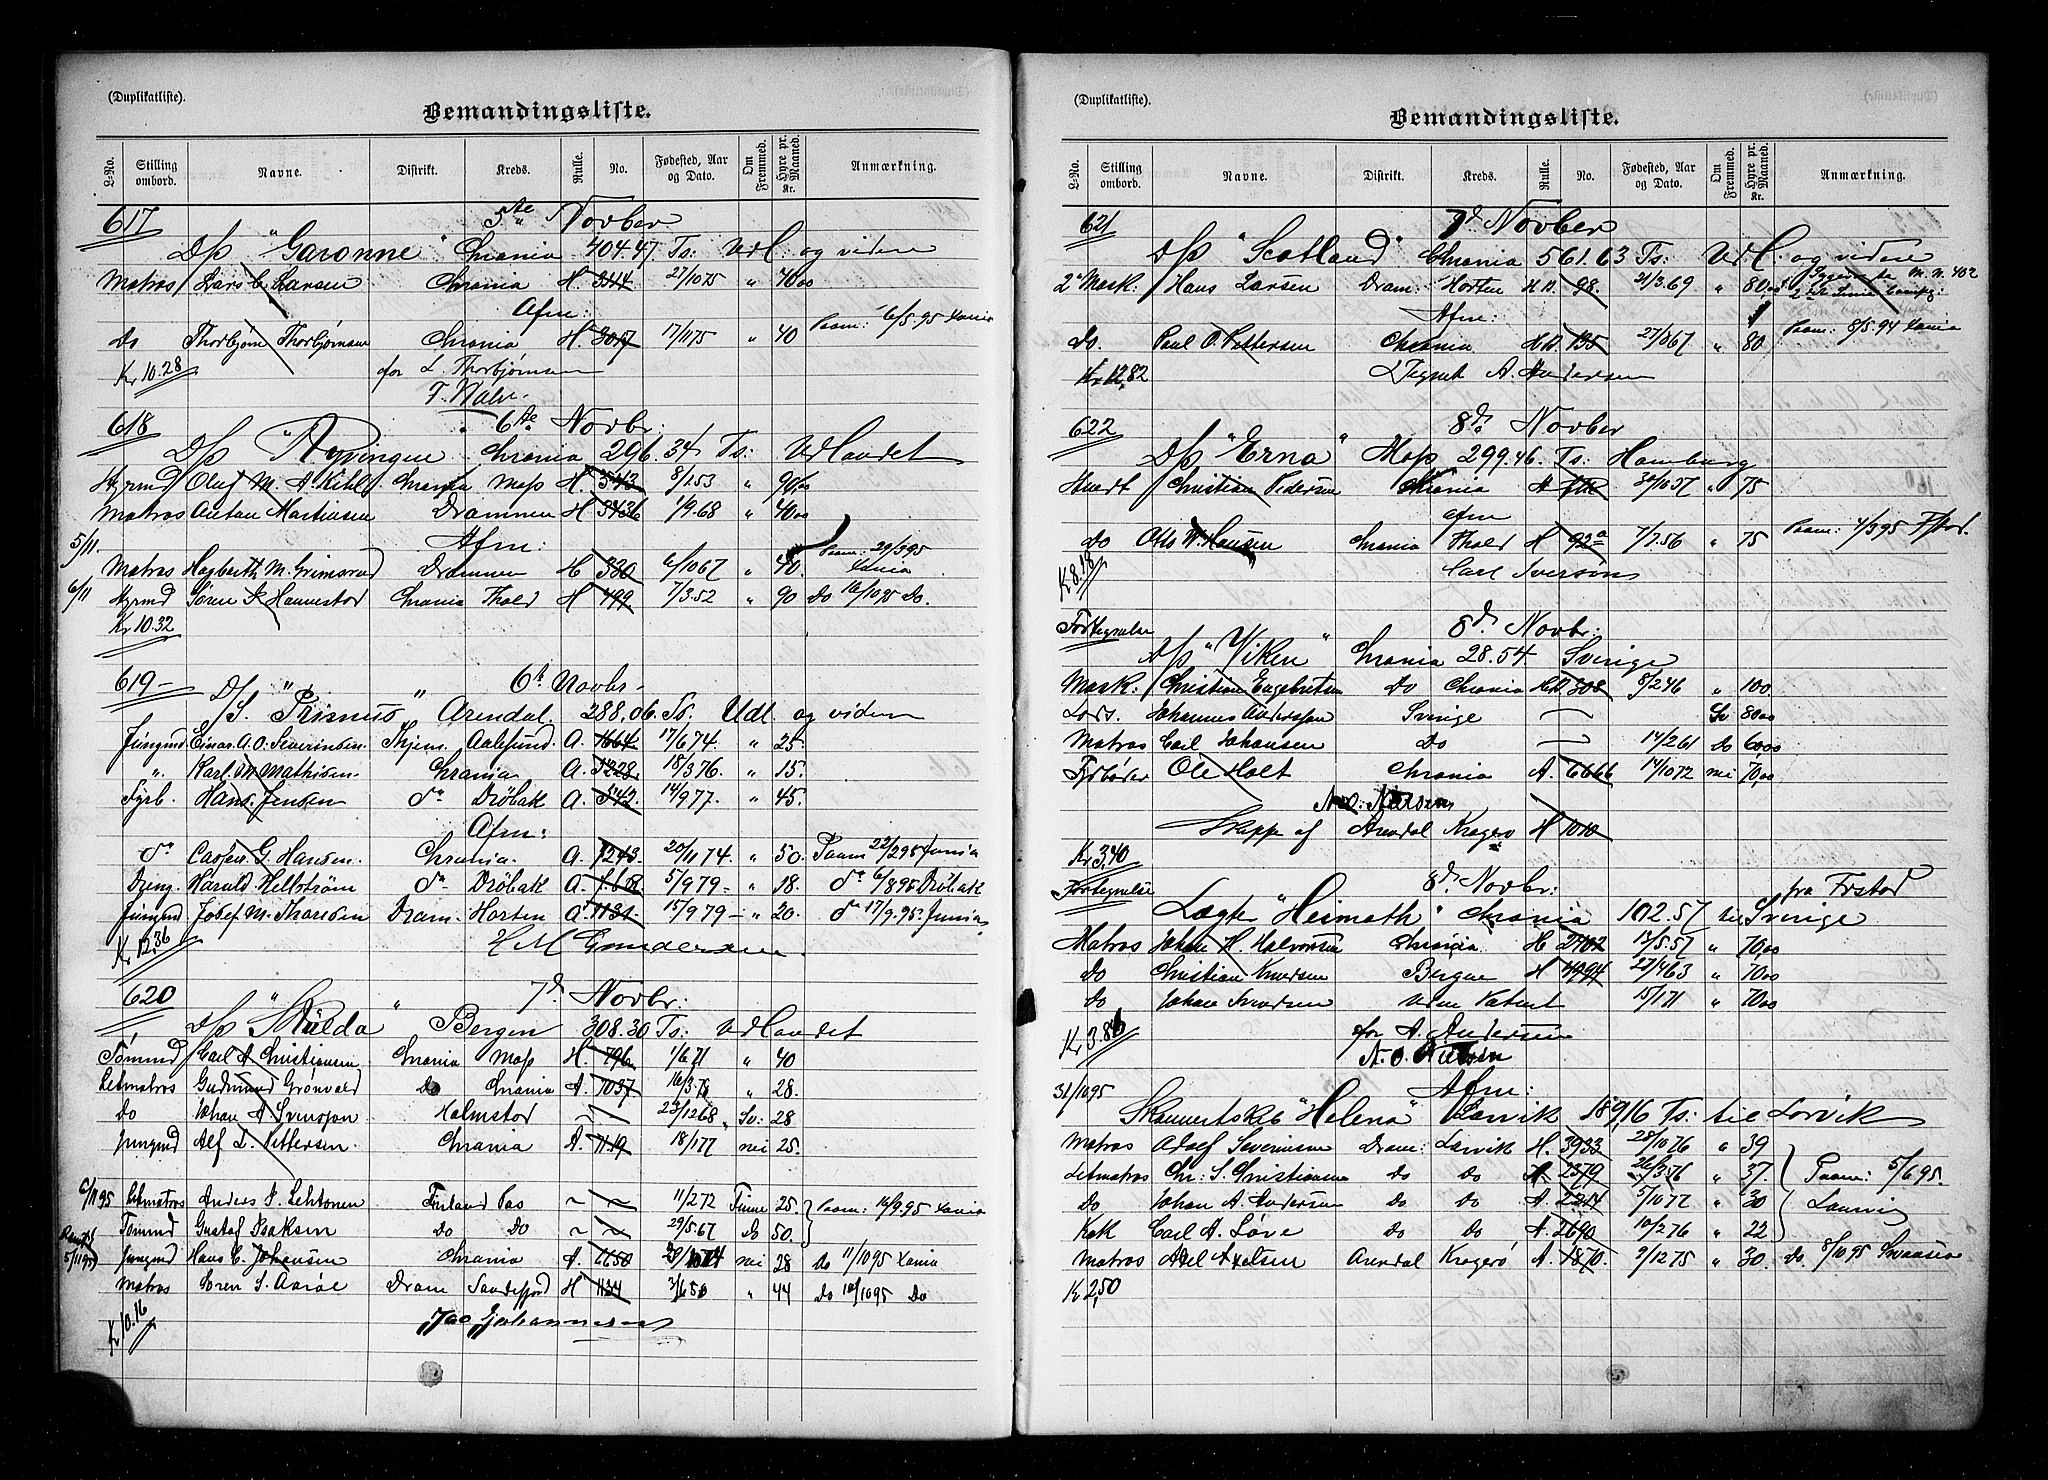 (Duplikatliste).
Bemandingsliste.
L-No. Stilling ombord. Navne. Distrikt. Kreds. Rulle. No. Fødested, Aar og Dato. Om Fremmed. Hyre pr. Maaned. Kr. Anmærkning.
617 5te Novber
D/p "Garonne" Chrania 404.47 Ts: Udl. og videre
Matros Lars C. Larsen Chrania H. 3114 27/10 75 " 40,00
Afm:
Do Thorbjørn Thorbjørnsen Chrania H. 3017 17/11 75 " 40 Paam: 6/5.95 Xania
Kr 10.28 for L. Thorbjørnsen
618 6te Novbr.
D/p "Ryvingen Chrania 296.34 Ts: Udlandet
Styrmd Oluf M. A. Kihl Chrania Moss H. 3543 8/1 53 " 90,00
Matros Anton Martinsen Drammen H 5436 1/9.68 " 40,00
5/11. Afm:
Matros Hagbarth M. Grimsrud Drammen H 330 6/10 67 " 40. Paam: 29/3 95 Xania
6/11 Styrmd Soren P. Hannestad Chrania Fhald H 499 7/3.52 " 90 Do 16/10 95 Do.
Kr 10.32
619 6te Novbr
D/S. "Prisnus" Arendal. 288.06 Ts. Udl. og videre
Jungmd Einar A. O. Severinsen. Thjem. Aalesund. A. 1664 17/6 74. " 25.
". Karl M Mathisen. Chrania A. 5228 18/3 76. " 15.
Fyrb. Hans Jensen do Dröbak A. 542. 14/9 77. " 45.
Afm:
do Casper G. Hansen. Chrania. A. 7243 20/11 74. " 50. Paam 22/2 95 Xania
Dreng. Harald Hellstrøm do Dröbak A. 5/9 79 " 18. do 6/8 95 Dröbak
Jungmd Josef M. Thoresen Dram. Horten A. 1131 15/9 79 " 20. do 17/9.95. Xania
Kr 12.36 H M Gundersen.
620 7d Novbr:
D/p "Skulda" Bergen 308.30 Ts: Udlandet
Tömmd Carl A. Christiansen Chrania Moss H. 796 1/6 71 " 40
Letmatros Gudmund Grönvold Do Chrania A. 7037 16/3.78 " 28.
Do Johan A. Svensson Halmstad ~ 23/12 68 Sv: 28
Jungmd Alf L. Pettersen. Chrania A. 7119 18/1 77 nei 25.
6/11 95 Letmatros Anders K. Lehtonen Finland Pas ~ ~ 11/2 72 Finne 25. Paam: 16/9.95 Xania
Tømmd Gustaf Isaksen Do Do ~ ~ 29/5.67 Do 50.
5/11 95 Jungmd Hans C. Johansen Chrania A. 6650 nei 28 Do 11/10 95 Xania
Matros Soren S. Aaröe Dram Sandefjord H 1134 3/6 50 " 44 Do 10/10 95 Do
Kr 10.16 Johannesen
(Duplikatliste).
Bemandingsliste.
L-No. Stilling ombord. Navne. Distrikt. Kreds. Rulle. No. Fødested, Aar og Dato. Om Fremmed. Hyre pr. Maaned. Kr. Anmærkning.
621 7d Novber
D/p "Scotland" Chrania 561.63 Ts: Udl. og videre
2' Mask: Hans Larsen Dram: Horten H.A. 98. 21/3.69 " 80,00
Afm:
Do Paul O. Pettersen Chrania H.A. 195 " 80 Paam: 8/5.94 Xania
Kr 12,82 Tegnet A. Andersen
622 8de Novber
D/p "Erna" Moss 299.46. Ts: Hamburg
Stuert Christian Pedersen Chrania A 30/10 57 " 75
Afm
Do Otto W. Hansen Chrania Fhald H 92a 7/7.56 " 75 Paam: 4/3 95 Fstad.
Kr 8.18 Carl Iversen
Fortegnelse 8d. Novbr:
D/p "Viken" Chrania 28.54 Sverige
Mask: Christian Engebretsen Do Chrania H.A. 308 8/2 46 " 100
Lods. Johannes Andersson Sverige — Sv 80,00
Matros Carl Johansen Do — 14/2 61 Do 60,00
Fyrbøder Ole Holt Chrania A. 6666 14/10 72 nei 70,00
N. O. Nielsen
Skipp af Arendal Kragerö H 1010
Kr 3,40
Fortegnelse 8d. Novbr: fra Frstad
Lægter "Heimath" Chrania 102.57 til Sverige
Matros Johan H. Halvorsen Chrania H 2702 15/5.57 " 70,00
Do Christian Knudsen Bergen H 4994 27/4 63 " 70,00
Do Johan Svendsen uden Patent 15/1 71 " 70,00
Kr 3.86 for A. Andersen
N. O. Nielsen
31/10 95 Afm:
Skonnertskib "Helena" Larvik 189,16 Ts: til Larvik
Matros Adolf Severinsen Dram: Larvik H. 3933 28/10 76 " 39
Letmatros Chr: S. Christiansen Do Do A. 2379 26/3 76 " 37. Paam: 5/6 95. Laurvig
Do Johan A. Andersen Do Do A. 2254 5/10 77 " 30
Kok Carl A. Löve Do Do A. 2690 10/2 76 " 22
Matros Axel Axelsen Arendal Kragerö A. 1870. 9/12 75 " 30. Do 8/10 95
Kr 2,50